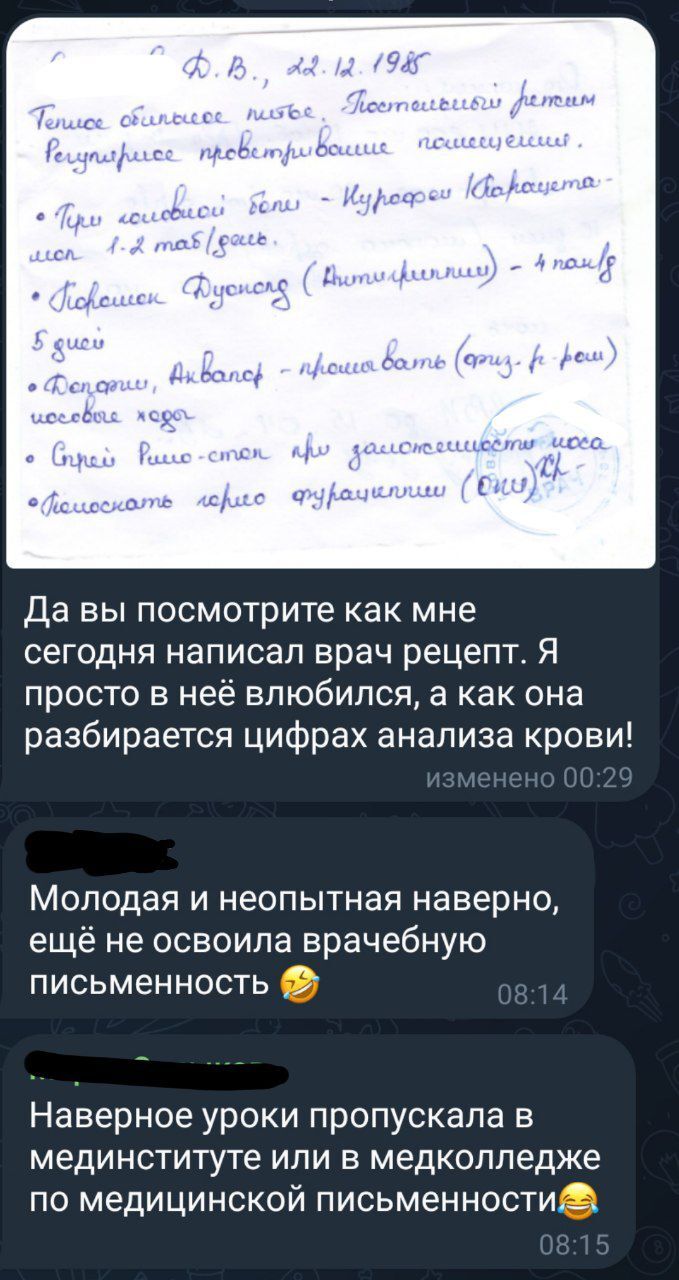 Ф. В., 22.12.1985
Теплое обильное питьё. Постельный режим
Регулярное проветривание помещения.
• При головной боли - Нурофен /Парацета-
мол 1-2 таб/день.
• Порошок (Антигриппин) - 4 пак/д
5 дней
• Долфин, Аквалор - промывать (физ. р-ром)
носовые ходы
• Спрей Рино-стоп при заложенности носа
• Полоскать горло фурациллин
Да вы посмотрите как мне
сегодня написал врач рецепт. Я
просто в неё влюбился, а как она
разбирается цифрах анализа крови!
изменено 00:29
Молодая и неопытная наверно,
ещё не освоила врачебную
письменность 🤣
08:14
Наверное уроки пропускала в
мединституте или в медколледже
по медицинской письменности😂
08:15